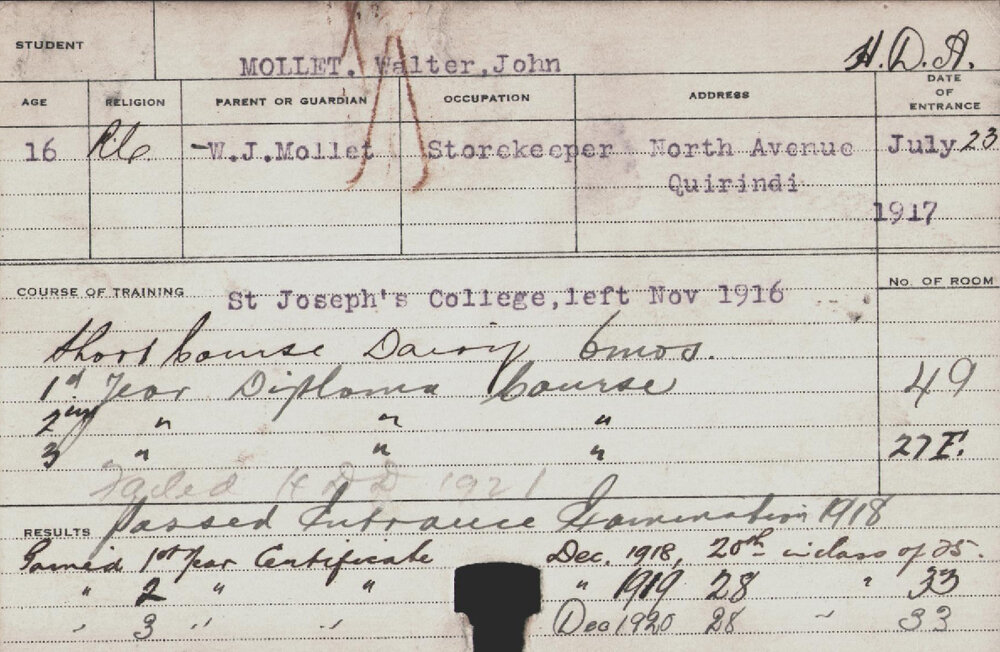 STUDENT
MOLLET, Walter, John
H.D.A.
AGE RELIGION PARENT OR GUARDIAN OCCUPATION ADDRESS DATE OF ENTRANCE
16 R.C. -W.J.Mollet Storekeeper North Avenue July 23
Quirindi
1917
COURSE OF TRAINING St Joseph's College, left Nov 1916 No. OF ROOM
Short Course Dairy 6 mos.
1st Year Diploma Course 49
2nd " " "
3 " " " 27 E.
Failed H D D 1921
RESULTS Passed Entrance Examination 1918
Gained 1st Year Certificate Dec. 1918, 20th in class of 25.
" 2 " " " 1919 28 " 33
" 3 " " Dec 1920 28 " 33